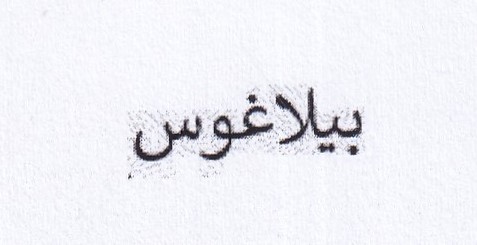 بيلاغوس